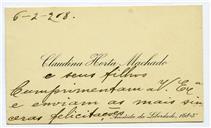 6-2-908.
Claudina Horta Machado
e seus filhos
Cumprimentam a V. Exª
e enviam as mais sin
ceras felicitações
Avenida da Liberdade, 168-5º